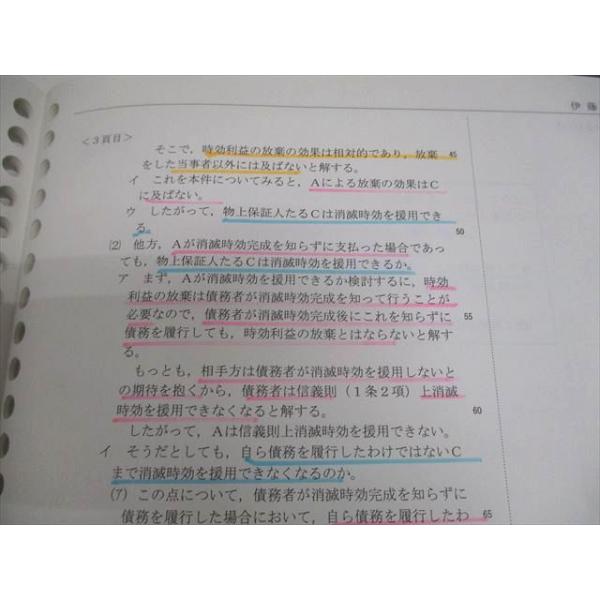 伊藤
<3頁目>
そこで，時効利益の放棄の効果は相対的であり，放棄 45
をした当事者以外には及ばないと解する。
イ これを本件についてみると，Aによる放棄の効果はC
に及ばない。
ウ したがって，物上保証人たるCは消滅時効を援用でき
る。 50
⑵ 他方，Aが消滅時効完成を知らずに支払った場合であっ
ても，物上保証人たるCは消滅時効を援用できるか。
ア まず，Aが消滅時効を援用できるか検討するに，時効
利益の放棄は債務者が消滅時効完成を知って行うことが
必要なので，債務者が消滅時効完成後にこれを知らずに 55
債務を履行しても，時効利益の放棄とはならないと解す
る。
もっとも，相手方は債務者が消滅時効を援用しないと
の期待を抱くから，債務者は信義則（1条2項）上消滅
時効を援用できなくなると解する。 60
したがって，Aは信義則上消滅時効を援用できない。
イ そうだとしても，自ら債務を履行したわけではないC
まで消滅時効を援用できなくなるのか。
(ｱ) この点について，債務者が消滅時効完成を知らずに
債務を履行した場合において，自ら債務を履行したわ 65